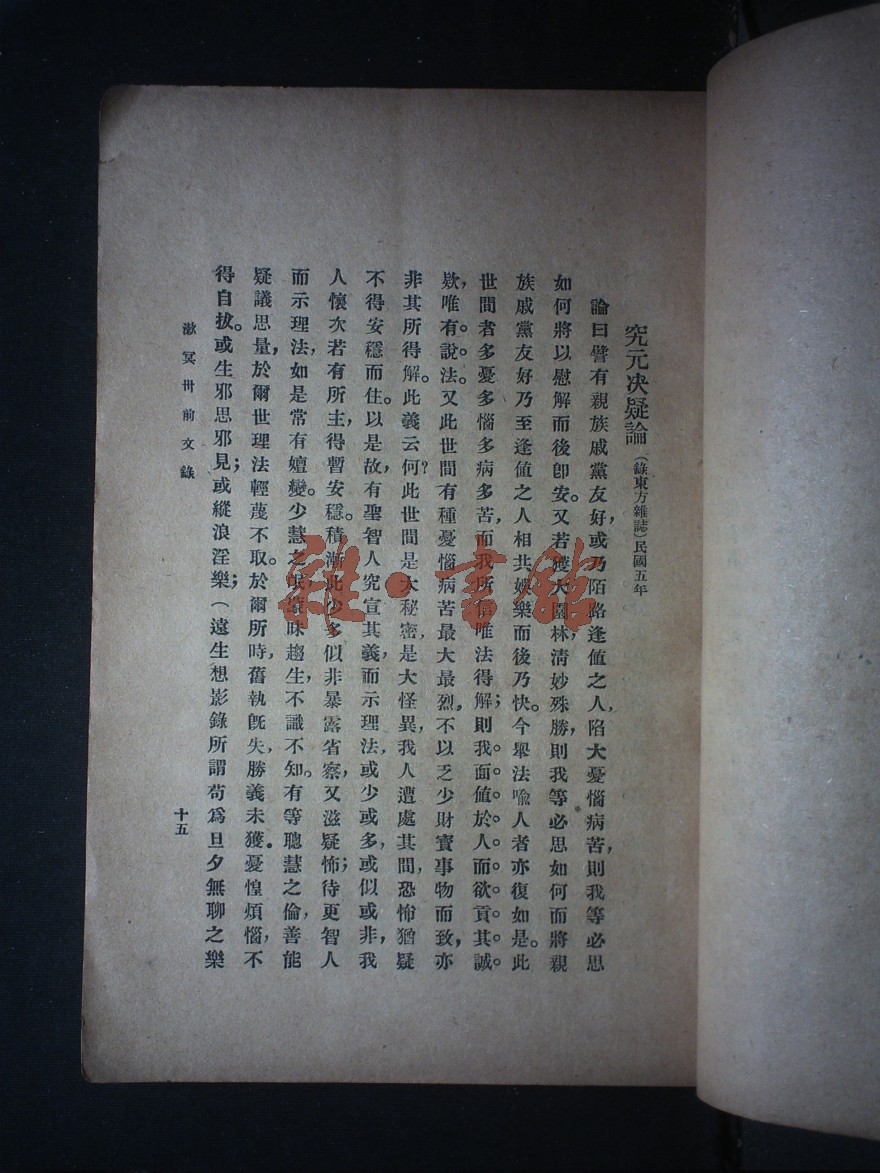 究元決疑論（錄東方雜誌）民國五年
論曰譬有親族戚黨友好，或乃陌路逢値之人，陷大憂惱病苦，則我等必思
如何將以慰解而後卽安。又若獲大園林，淸妙殊勝，則我等必思如何而將親
族戚黨友好乃至逢値之人相共娛樂而後乃快。今舉法喩人者亦復如是。此
世間者多憂多惱多病多苦，而我所信唯法得解；則我。面値。於人。而欲。貢。其。誠。
欵，唯。有。說。法。又此世間有種憂惱病苦最大最烈，不以乏少財寶事物而致，亦
非其所得解。此義云何？此世間是大秘密，是大怪異，我人遭處其間，恐怖猶疑
不得安穩而住。以是故，有聖智人究宣其義，而示理法，或少或多，或似或非，我
人懷次若有所主，得暫安穩。積漸此少多似非暴露省察，又滋疑怖；待更智人
而示理法，如是常有嬗變。少慧之氓蒙昧趨生，不識不知。有等聰慧之倫，善能
疑議思量，於爾世理法輕蔑不取。於爾所時，舊執旣失，勝義未獲。憂惶煩惱，不
得自拔。或生邪思邪見；或縱浪淫樂；（遠生想影錄所謂苟爲旦夕無聊之樂
漱冥卅前文錄
十五
雜·書館